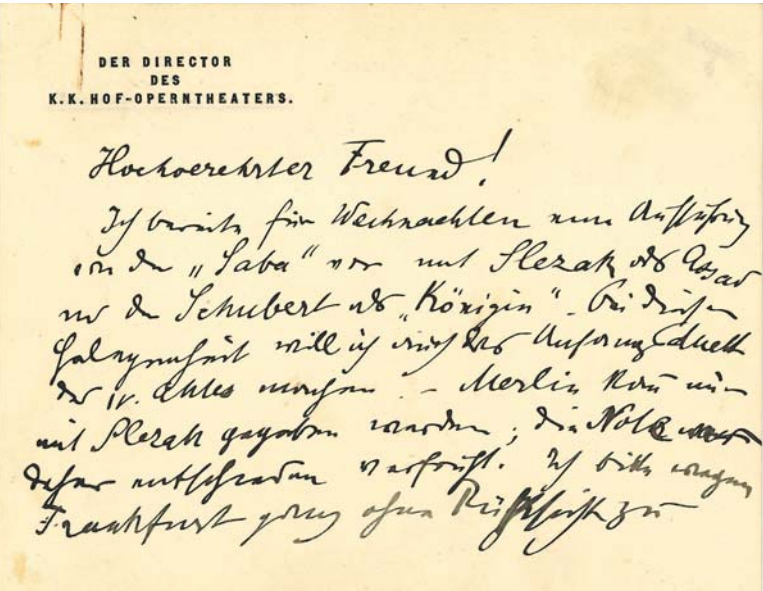 DER DIRECTOR
DES
K. K. HOF-OPERNTHEATERS.
Hochverehrter Freund!
Ich bereite für Weihnachten eine Aufführung
von der „Saba“ vor mit Slezak als Assad
und der Schubert als „Königin“ – bei dieser
Gelegenheit will ich auch das Anfangsduett
des IV. Aktes machen. – Merlin kann nur
mit Slezak gegeben werden; die Note war
daher entschieden verfrüht. Ich bitte wegen
Frankfurt ganz ohne Rücksicht zu